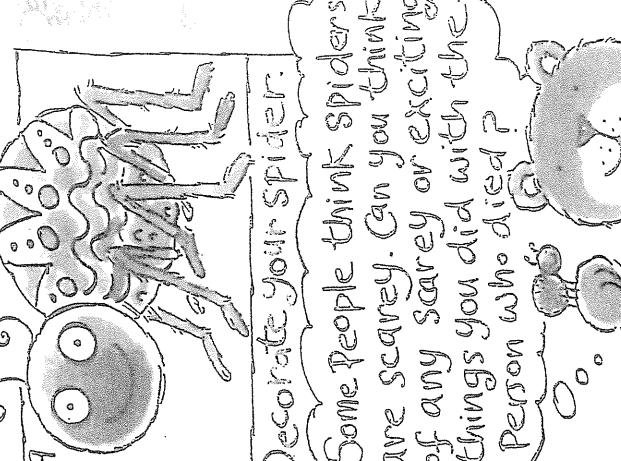 Decorate your spider.
Some People think spiders
are scarey. Can you think
of any scarey or exciting
things you did with the
Person who died?